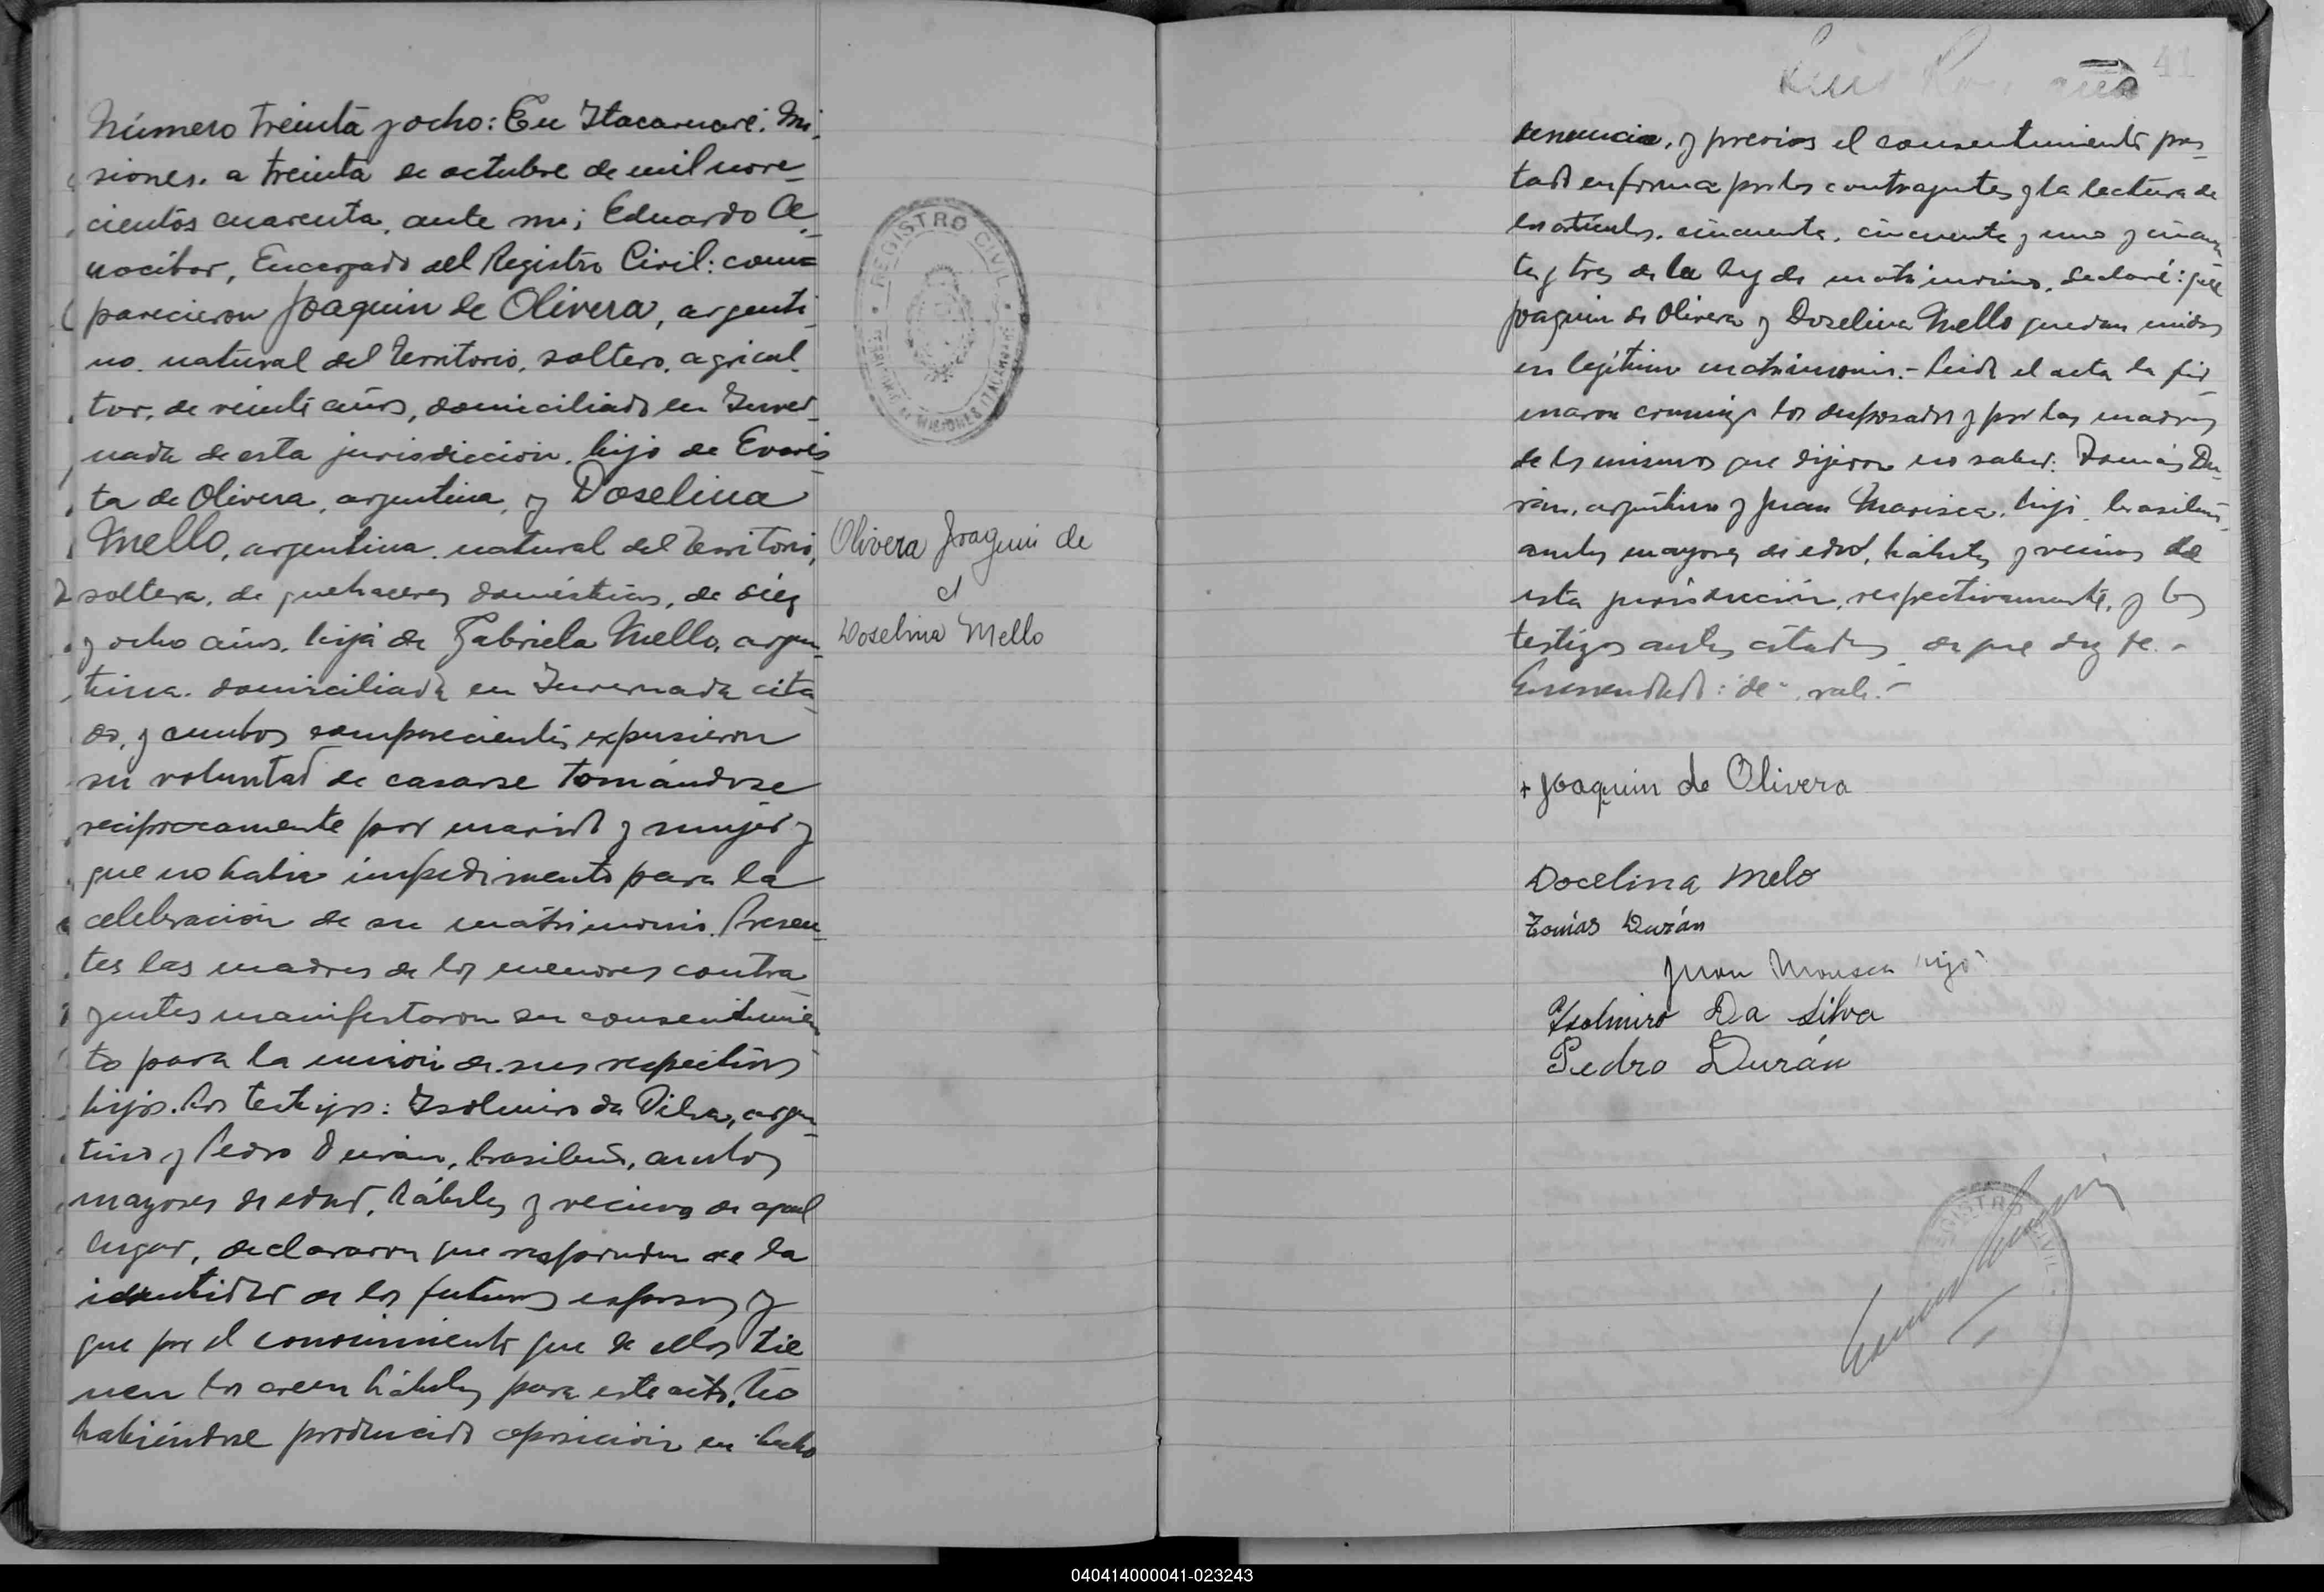 Número treinta y ocho: En Itacaruaré, Mi-
siones, a treinta de octubre de mil nove-
cientos cuarenta, ante mi; Eduardo
Encargado del Registro Civil: com-
parecieron Joaquin de Olivera, argenti-
no, natural del Territorio, soltero, agricul-
tor, de veinte años, domiciliado en Inver-
nada de esta jurisdicción, hijo de Evaris-
ta de Olivera, argentina, y Doselina
Mello, argentina, natural del Territorio,
soltera, de quehaceres domésticos, de diez
y ocho años, hija de Gabriela Mello, argen-
tina, domiciliada en Invernada cita-
da, y ambos comparecientes expusieron
su voluntad de casarse tomándose
reciprocamente por marido y mujer y
que no habia impedimento para la
celebración de su matrimonio. Presen-
tes las madres de los menores contra-
yentes manifestaron su consentimien-
to para la unión de sus respectivos
hijos. Los testigos: Isolmiro da Silva, argen-
tino y Pedro Durán, brasileño, ambos
mayores de edad, hábiles y vecinos de aquel
lugar, declararon que responden de la
identidad de los futuros esposos y
que por el conocimiento que de ellos tie
nen los creen hábiles para este acto. No
habiéndose producido oposición en
REGISTRO CIVIL
Olivera Joaquin de
c/
Doselina Mello
41
denuncia, y previos el consentimiento pres-
tado en forma por los contrayentes y la lectura de
los artículos, cincuenta, cincuenta y uno y cincuen-
ta y tres de la ley de matrimonio, declaré: que
Joaquin de Olivera y Doselina Mello quedan unidos
en legítimo matrimonio.- Leida el acta la fir-
maron conmigo los desposados y por las madres
de los mismos que dijeron no saber: Tomás Du-
rán, argentino y Juan Marisca, hijo, brasileño,
ambos mayores de edad, hábiles y vecinos de
esta jurisdicción, respectivamente, y los
testigos antes citados de que doy fe.-
Enmendado: "de", vale.-
+ Joaquin de Olivera
Docelina Melo
Tomás Durán
Juan hijo
Ysolmiro Da Silva
Pedro Durán
REGISTRO CIVIL
040414000041-023243